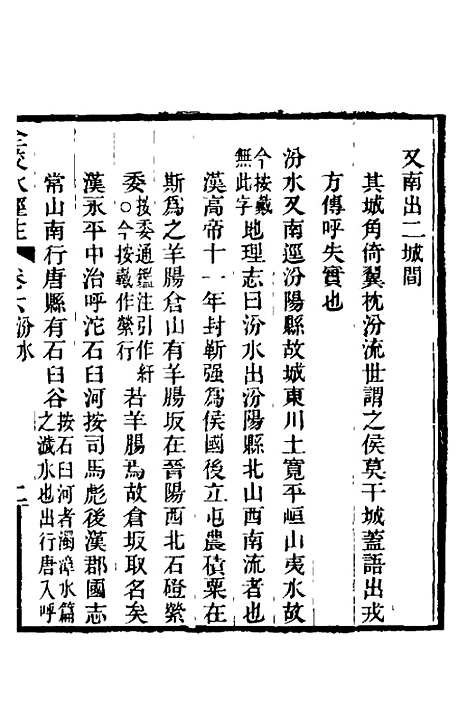 又南出二城間
其城角倚翼枕汾流世謂之侯莫干城蓋語出戎
方傳呼失實也
汾水又南逕汾陽縣故城東川土寬平峘山夷水故
今按戴無此字地理志曰汾水出汾陽縣北山西南流者也
漢高帝十一年封靳强為侯國後立屯農積粟在
斯為之羊腸倉山有羊腸坂在晉陽西北石磴縈
委按委通鑑注引作紆○今按戴作縈行若羊腸焉故倉坂取名矣
漢永平中治呼沱石臼河按司馬彪後漢郡國志
常山南行唐縣有石臼谷按石臼河者濁漳水篇之濊水也出行唐入呼
全校水經注 卷六汾水 二